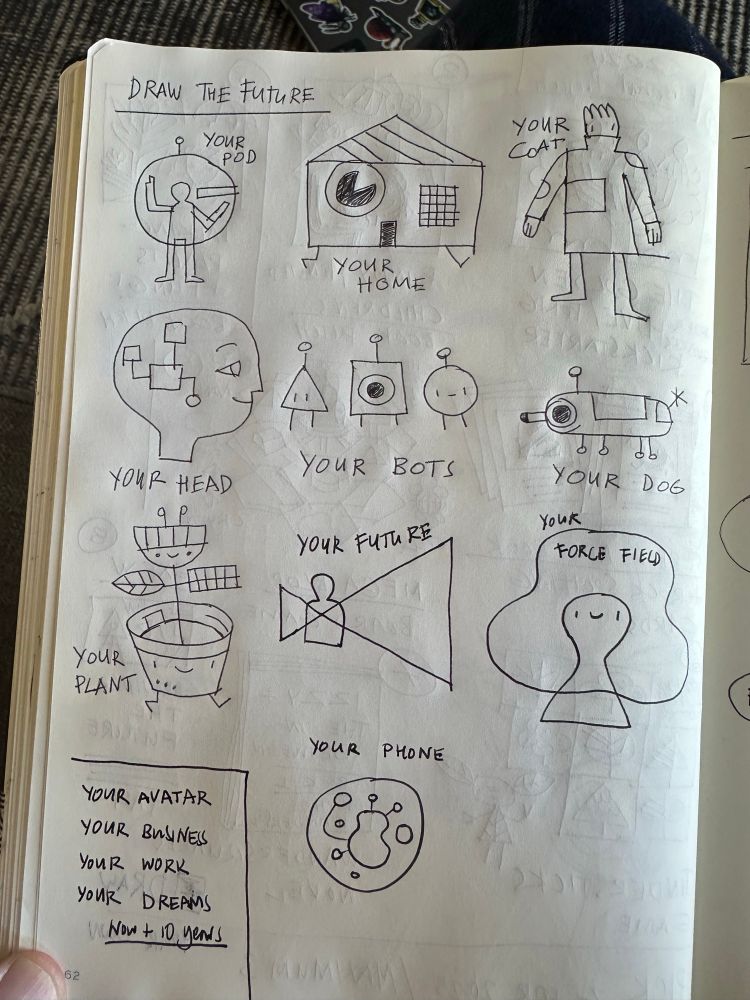 DRAW THE FUTURE
YOUR
POD
YOUR
HOME
YOUR
COAT
YOUR HEAD
YOUR BOTS
YOUR DOG
YOUR
PLANT
YOUR FUTURE
YOUR
FORCE FIELD
YOUR PHONE
YOUR AVATAR
YOUR BUSINESS
YOUR WORK
YOUR DREAMS
Now + 10 years
62